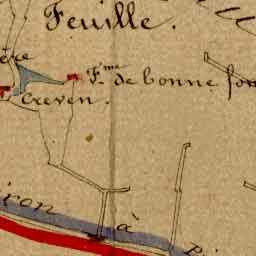 Feuille.
ère
Fme de bonne fon
Creven.
iron à Pi